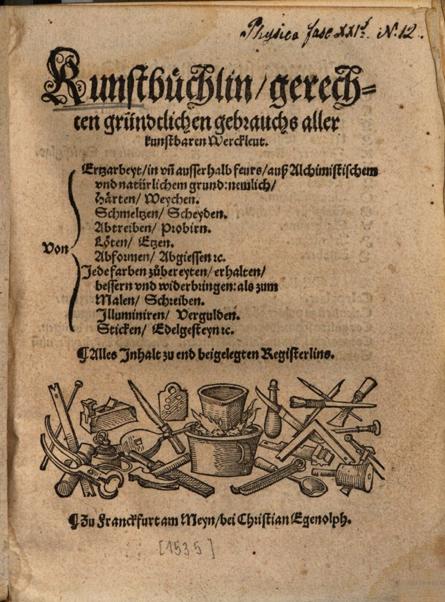 Physica fasc XXI². N. 12.
Kunstbüchlin/ gerech⸗
ten gründtlichen gebrauchs aller
kunstbaren Werckleut.
Ertzarbeyt/ in vñ ausserhalb feurs/ auß Alchimistischem
vnd natürlichem grund: nemlich/
Härten/ Weychen.
Schmeltzen/ Scheyden.
Abtreiben/ Probirn.
Löten/ Etzen.
Von
Abformen/ Abgiessen ꝛc.
Jede farben zůbereyten/ erhalten/
bessern vnd widerbringen: als zum
Malen/ Schreiben.
Illuminiren/ Vergulden.
Sticken/ Edelgesteyn ꝛc.
¶ Alles Inhalt zu end beigelegten Registerlins.
¶ Zu Franckfurt am Meyn/ bei Christian Egenolph.
[1535]